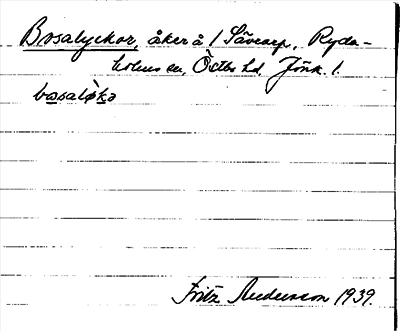 Bosalyckor, åker å 1 Sävearp, Ryda-
holms sn, Östbo hd, Jönk. l.
bosalø̀kə
Fritz Andersson 1939.